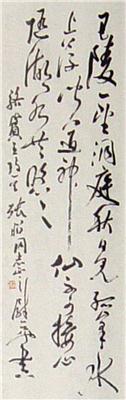 巴陵一望洞庭秋日见孤峯水
上浮闻道神仙不可接心
随湖水共悠悠
同志